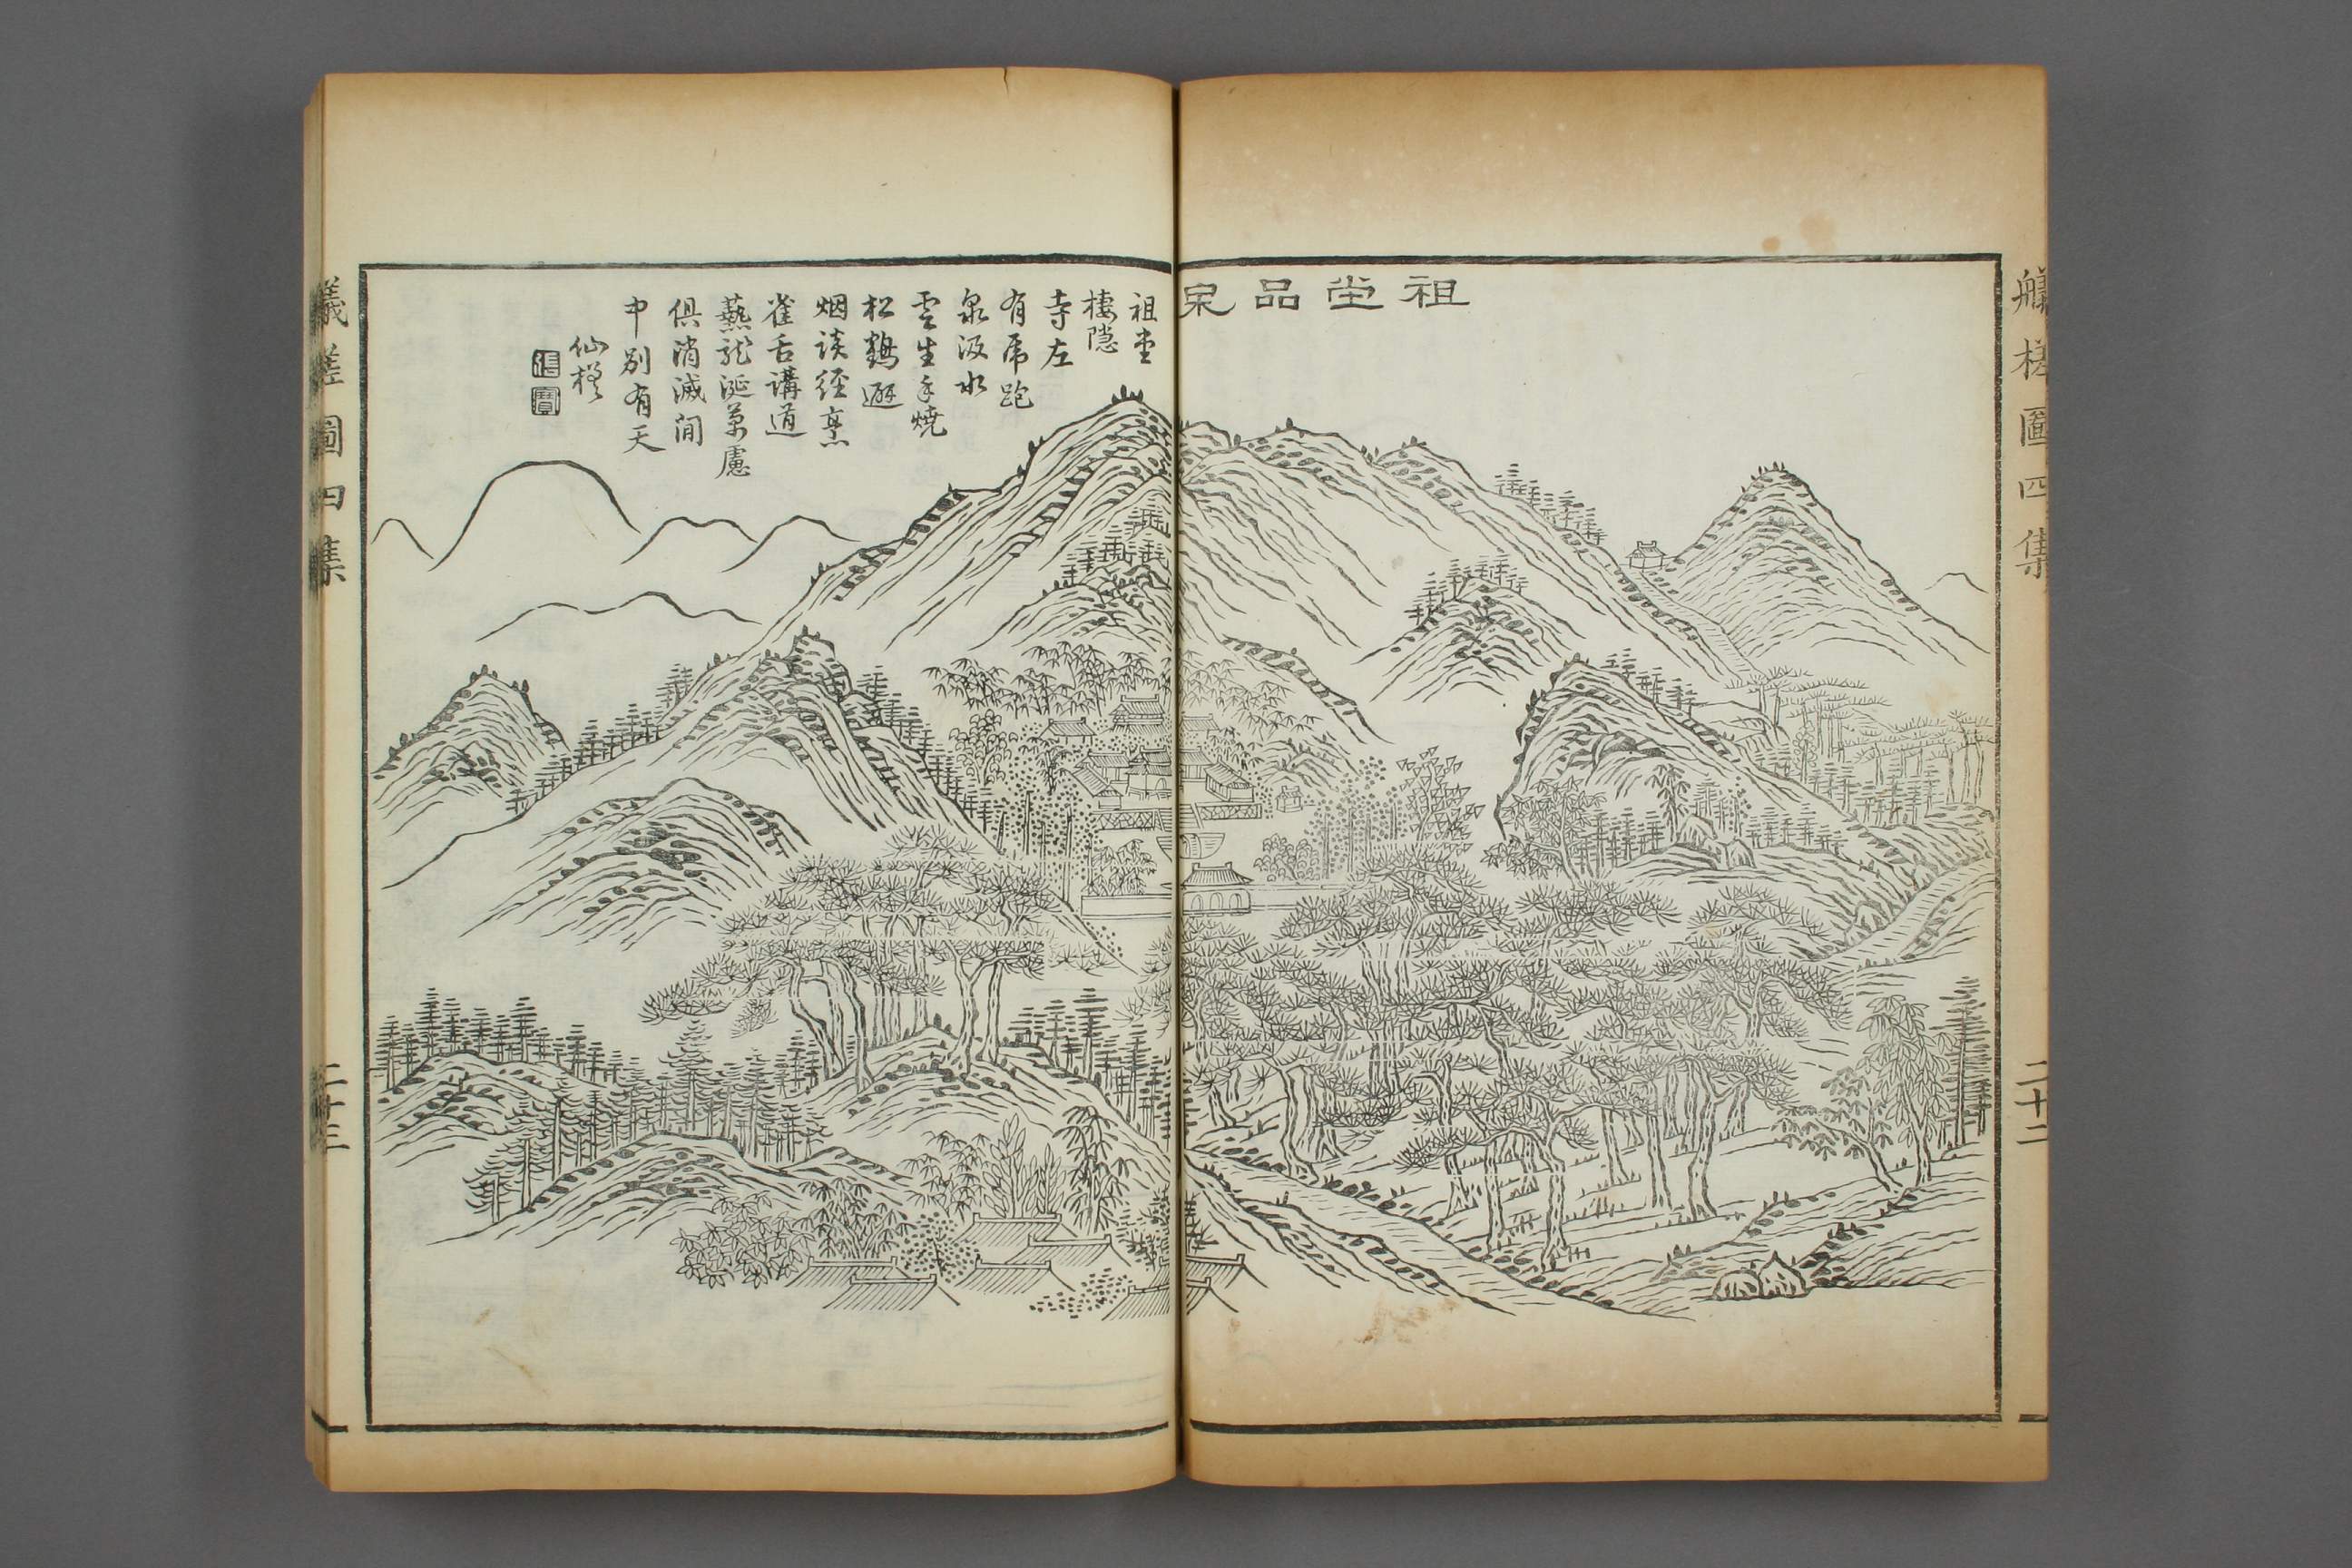 艤槎圖四集
二十二
祖坣品泉
祖堂
棲隱
寺左
有虎跑
泉汲水
雲生手燒
松鶴避
烟談經烹
雀舌講道
爇龍涎萬慮
俱消滅間
中別有天
仙槎
張寶
艤槎圖四集
二十三